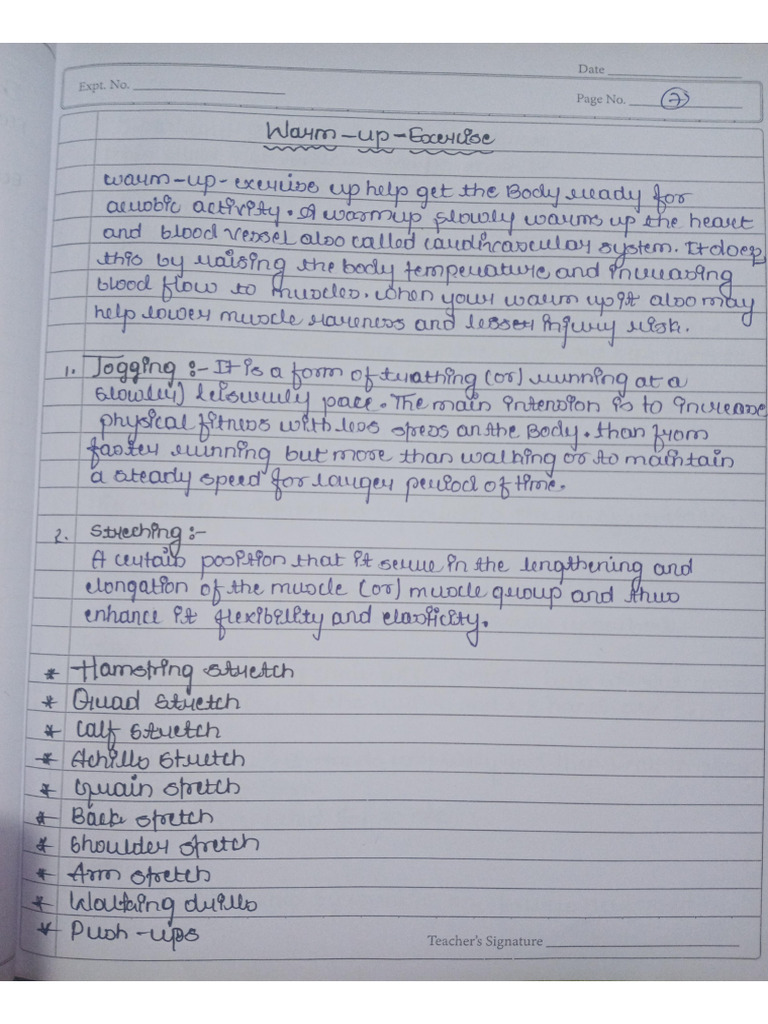 Date
Expt. No.
Page No. 7
Warm-up-Excercise
warm-up-exercise up help get the Body ready for
aerobic activity. A warmup slowly warms up the heart
and blood vessel also called cardiovascular system. It does
this by raising the body temperature and increasing
blood flow to muscles. when your warm up it also may
help lower muscle and lesser injury risk.
1. Jogging :- It is a form of (or) running at a
slowley) leisurely pace. The main intension is to increase
physical fitness with less on the Body. than from
faster running but more than walking or to maintain
a steady speed for larger period of time.
2. Streching :-
A certain position that it serve in the lengthening and
elongation of the muscle (or) muscle group and thus
enhance it flexibility and elasticity.
* Hamstring stretch
* Quad stretch
* Calf stretch
* Achills stretch
* Grain stretch
* Back stretch
* Shoulder stretch
* Arm stretch
* Walking drills
* Push-ups
Teacher's Signature